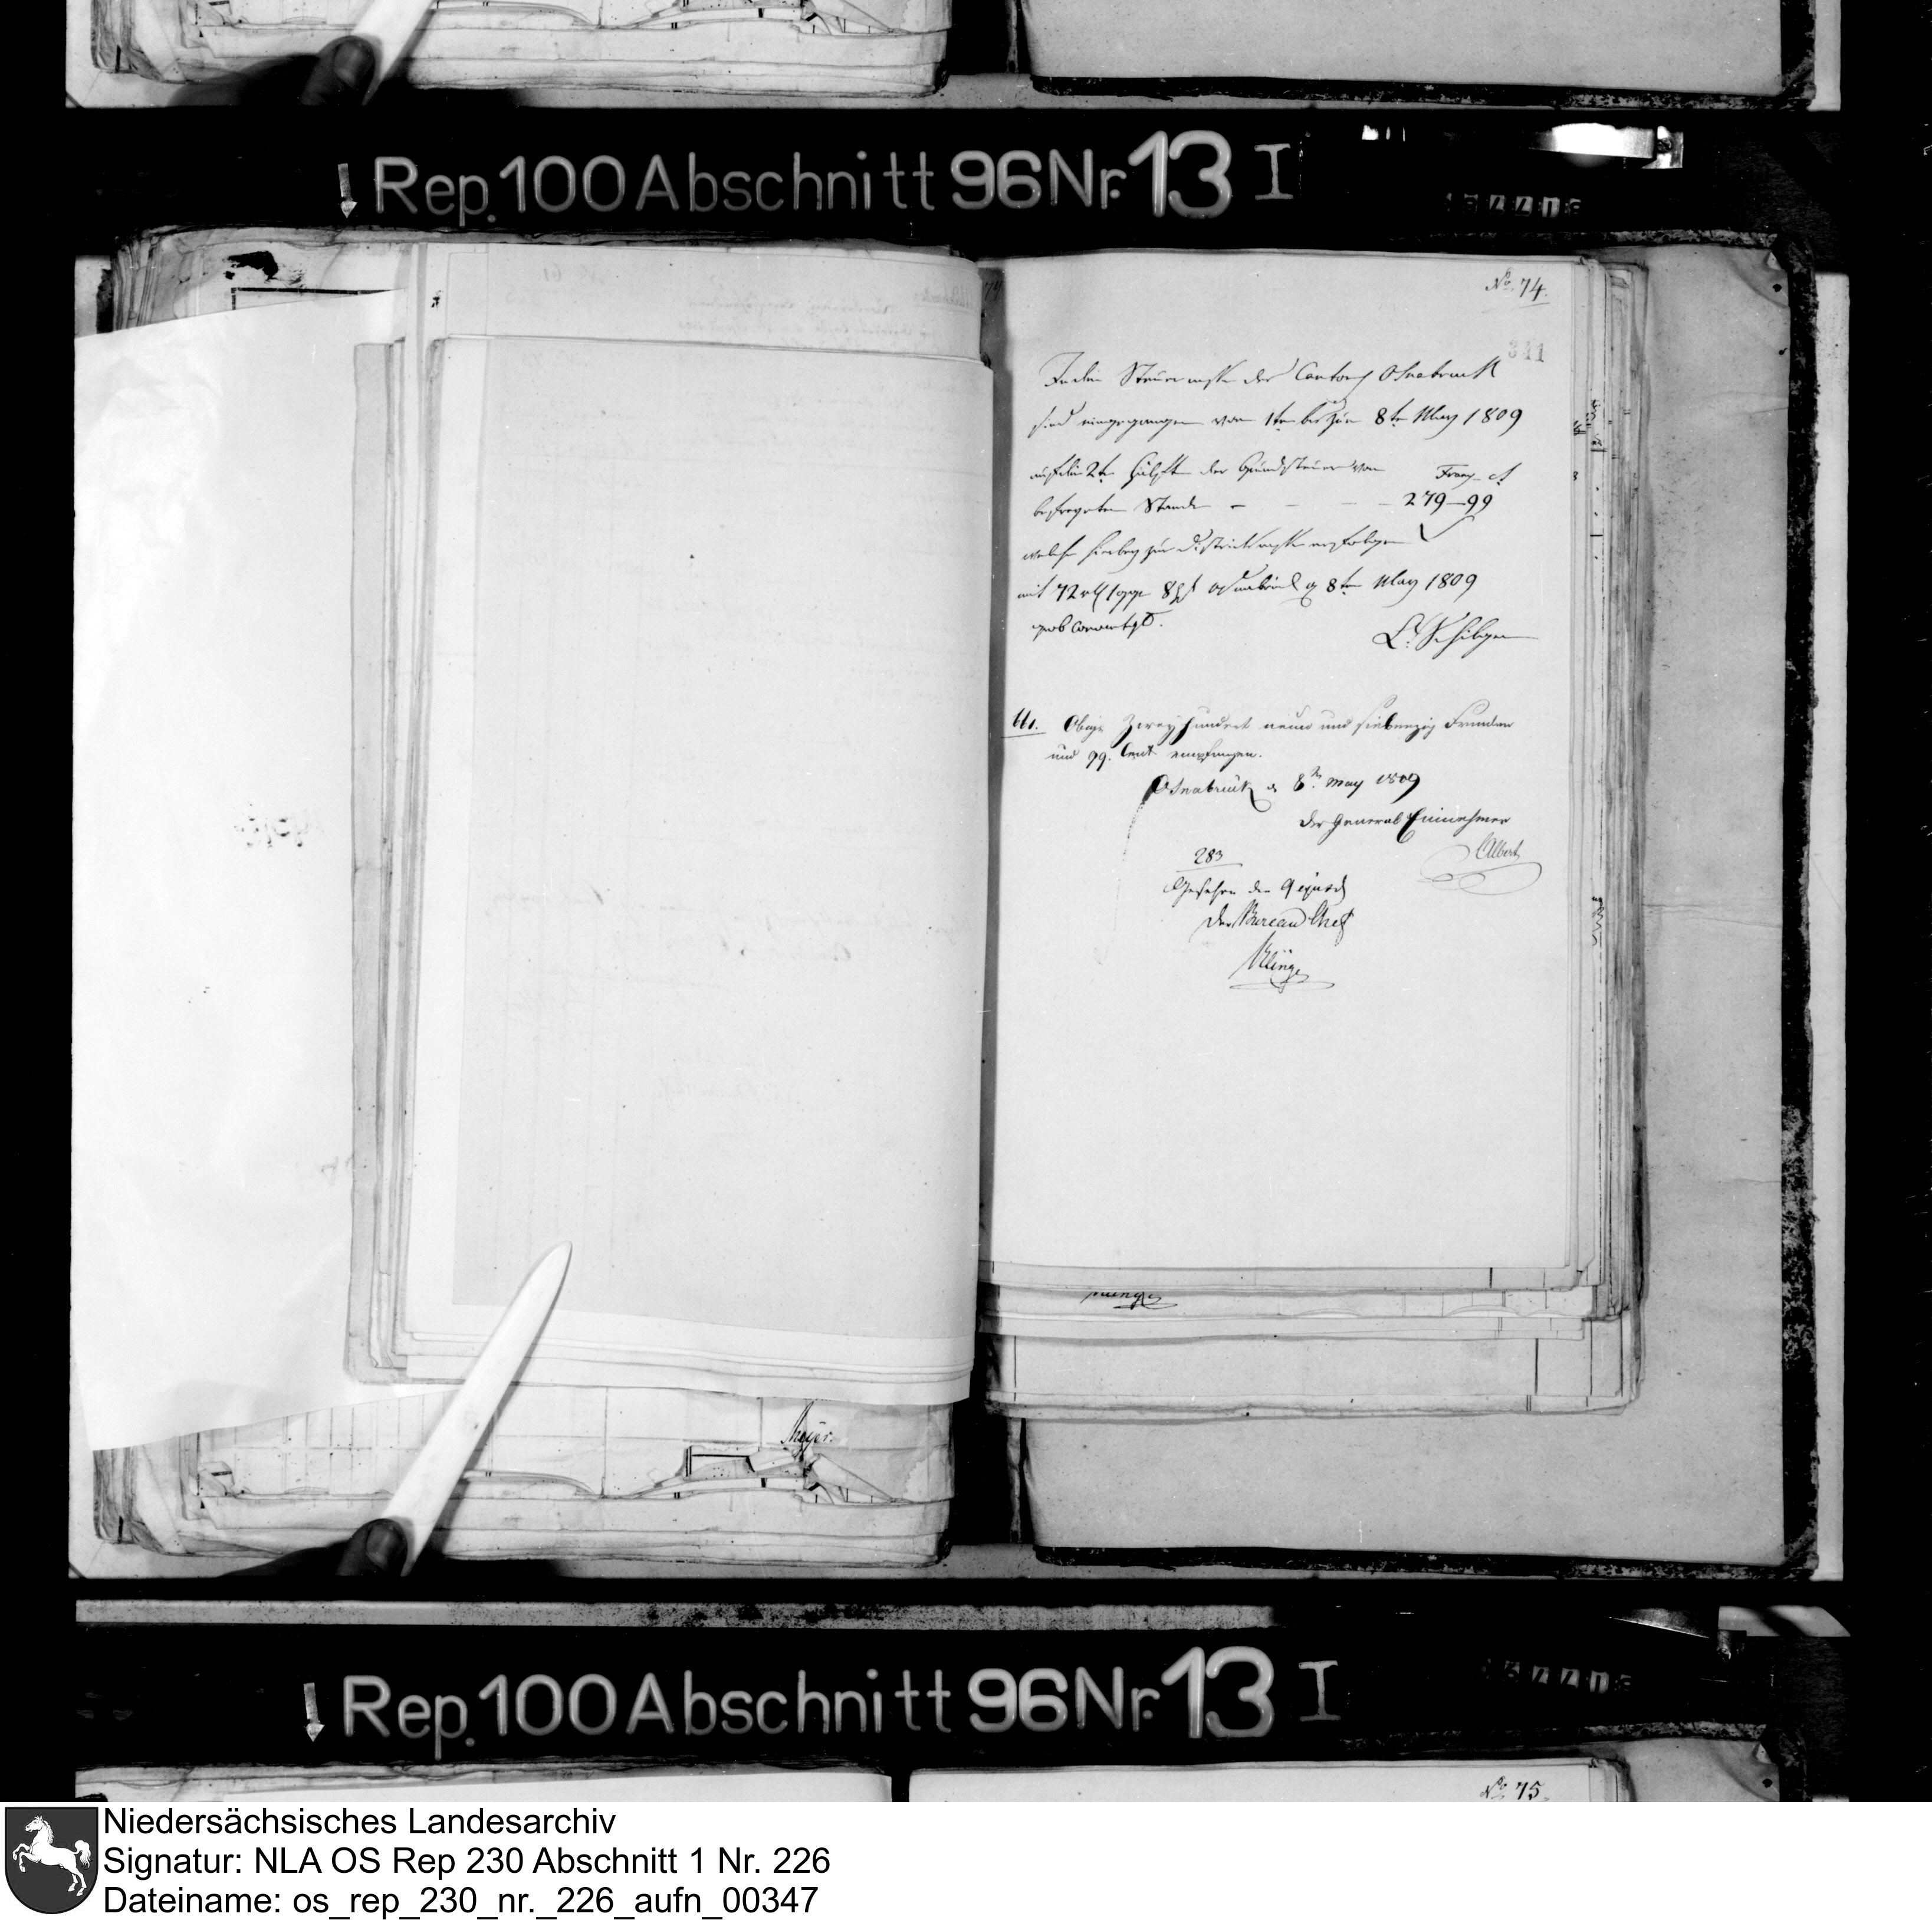 Rep. 100 Abschnitt 96 Nr. 13 I
No. 74.
341
In die Steuercasse des Cantons Osnabruck
sind eingegangen vom 1ten bis zum 8ten May 1809
auf die 2te Hälfte der Grundsteuer von
Francs ct
befreyeten Stande - - - - 279-99
welche hierbey zur Districtcasse erfolgen
mit 72 1 8 Osnabrück 8ten May 1809
grob Courant
Obige Zweyhundert neun und siebenzig Franken
und 99. Cent empfangen.
Osnabrück d 8ten May 1809
Der General Einnehmer
Albert
283
Gesehen den 9 ejusd
Der Bureau Chef
Klinge
Klinge
Meyer.
Rep. 100 Abschnitt 96 Nr. 13 I
No. 75.
Niedersächsisches Landesarchiv
Signatur: NLA OS Rep 230 Abschnitt 1 Nr. 226
Dateiname: os_rep_230_nr._226_aufn_00347